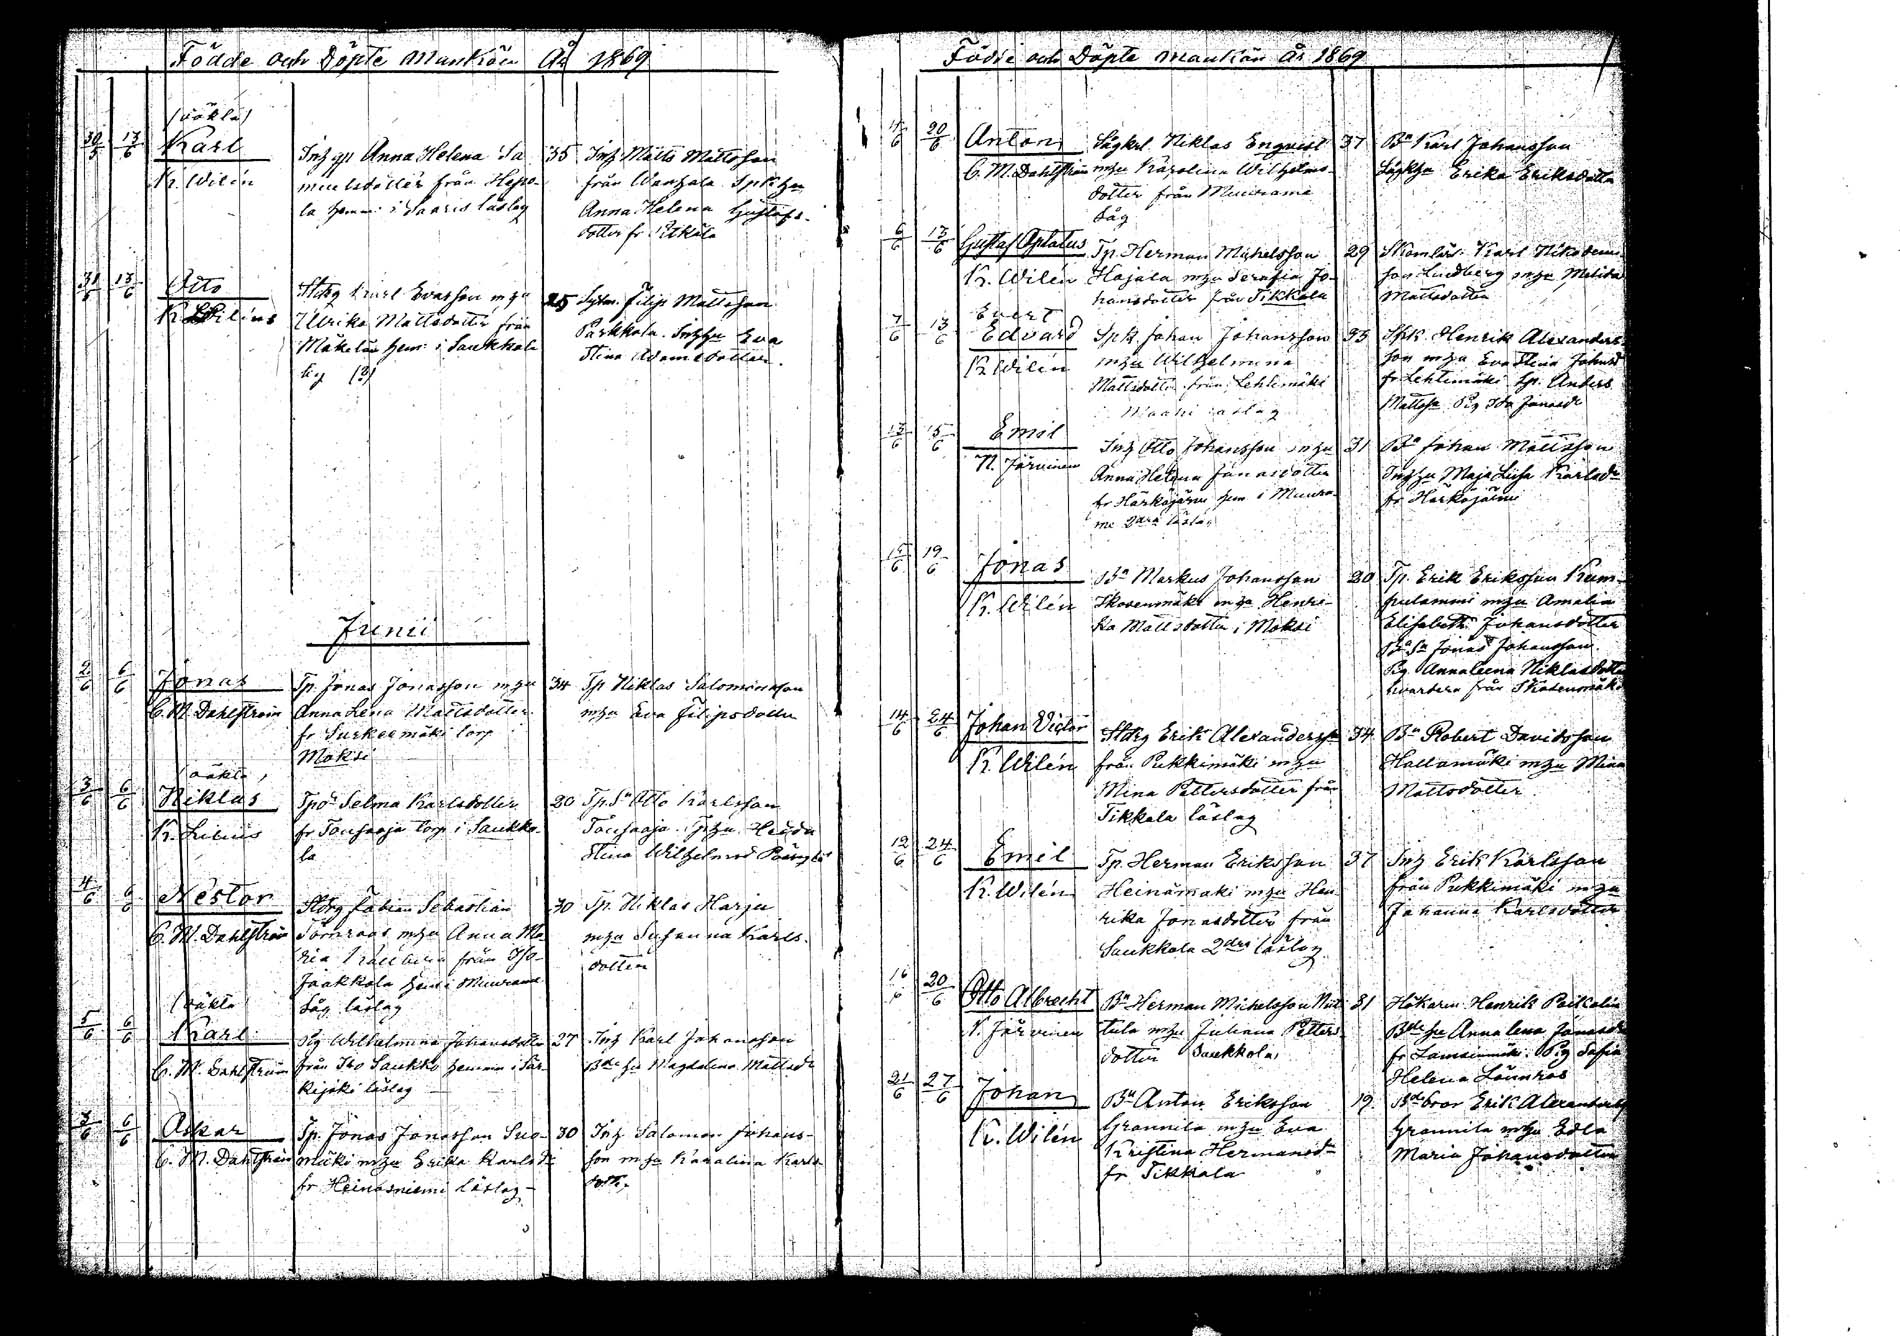 Födde och Döpte Mankön År 1869
(oäkta)
30/5 13/6 Karl
K. Wilén
Inh Anna Helena Sa
muelsdotter från Hepo-
la hem: i Saaris läslag
35
Inh Matts Mattsson
från
Anna Helena Gustafs-
dotter fr
31/5 13/6 Otto
K. Lilius
Karl Evasson m hu
Ulrika Mattsdotter från
Mäkelän hem: i Saukkola
25
Filip Mattsson
Parkkola. Eva
Stina Adamsdotter.
Junii
2/6 6/6 Jonas
C. M. Dahlström
Tp. Jonas Jonasson m hu
Anna Lena Mattsdotter
fr Surkeemäki torp
Moksi
34
Tp Niklas Salomonsson
m hu Eva Filipsdotter
(oäkta)
3/6 6/6 Niklas
K. Lilius
Selma Karlsdotter
fr torp i Saukko-
la
20
Otto Karlsson
Heda
Stina
4/6 6/6 Nestor
C. M. Dahlström
Stdrg Fabian Sebastian
Törnroos m hu Anna Ma
ria från Iso-
Jaakkola hem i Muurame
Såg läslag
30
Tp. Niklas Harju
m hu Susanna Karls-
dotter
(oäkta)
5/6 6/6 Karl
C. M. Dahlström
Pig Wilhelmina Johansdotter
från Iso Saukko hemm i Sär-
kijoki läslag
27
Inh Karl Johansson
Magdalena Mattsdr
3/6 6/6 Oskar
C. M. Dahlström
Tp. Jonas Jonasson Suo-
mäki m hu Erika Karlsdr
fr Heinosniemi läslag
30
Inh Salomon Johans-
son m hu Karolina Karls
dottr
Födde och Döpte Mankön År 1869
4/6 20/6 Anton
C. M. Dahlström
Sågkrl Niklas Enqvist
m hu Karolina Wilhelms-
dotter från Muurame
Såg
37
Bn Karl Johansson
Erika Eriksdotter
6/6 13/6 Gustaf Optatus
K. Wilén
Tp. Herman Michelsson
Hajala m hu Serafia Jo-
hansdotter från Tikkala
29
Karl Nikodems-
son Lindberg m hu
Mattsdotter
Evert
7/6 13/6 Edvard
K. Wilén
Spk. Johan Johansson
m hu Wilhelmina
Mattsdotter från Lehtimäki
läslag
33
Spk. Henrik Alexanders-
son m hu Eva Stina Johansd
fr Lehtimäki Sp. Anders
Mattss Pig Ida Jonasdr
13/6 15/6 Emil
N. Järvinen
Inh Otto Johansson m hu
Anna Helena Jonasdotter
fr Härköjärvi hem i Muura-
me 2dra läslag
31
Bn Johan Mattsson
Maja Lisa Karlsdr
fr Härköjärvi
15/6 19/6 Jonas
K. Wilén
Bn Markus Johansson
Skosenmäki m hu Henri-
ka Mattsdotter i Moksi
20
Tp. Erik Eriksson Kum-
pulammi m hu Amalia
Elisabeth Johansdotter
Jonas Johansson.
Pig Annaleena Niklasdotter
från Skosenmäki
14/6 24/6 Johan Victor
K. Wilén
Stdrg Erik Alexanderss
från Pukkimäki m hu
Mina Pettersdotter från
Tikkala läslag
34
Bn Robert Davidsson
Hallamäki m hu Mina
Mattsdotter
12/6 24/6 Emil
K. Wilén
Tp. Herman Eriksson
Heinämäki m hu Hen
rika Jonasdotter från
Saukkola 2dra läslag
37
Inh Erik Karlsson
från Pukkimäki m hu
Johanna Karlsdotter
16/6 20/6 Otto Albrecht
N. Järvinen
Bn Herman Michelsson Niit
tula m hu Juliana Petters
dotter Saukkola
31
Henrik
Anna Lena Jonasdr
fr Pig Sofia
Helena Lönnroos
21/6 27/6 Johan
K. Wilén
Bn Anton Eriksson
Grannila m hu Eva
Kristina Hermansd
fr Tikkala
19
Erik Alexanders
Grannila m hu Edla
Maria Johansdotter